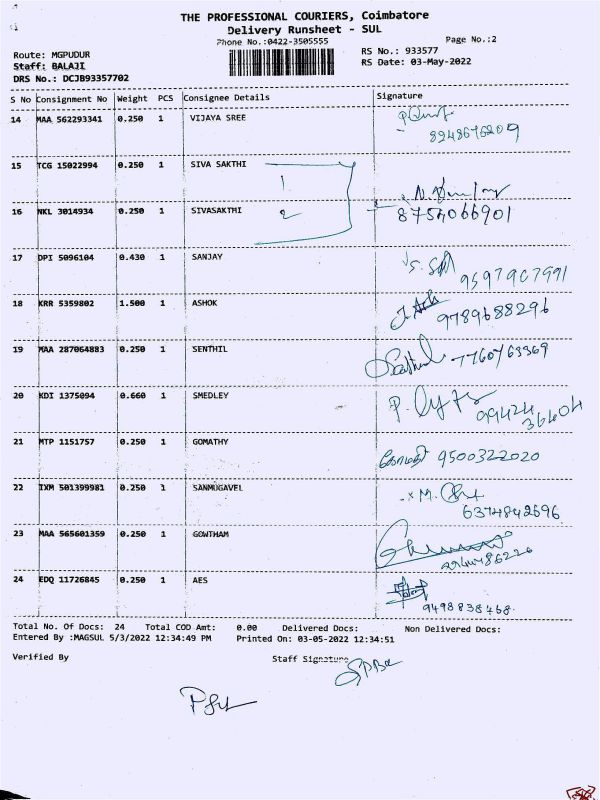 THE PROFESSIONAL COURIERS, Coimbatore
Delivery Runsheet - SUL
Phone No.:0422-3505555
Page No.:2
Route: MGPUDUR
RS No.: 933577
Staff: BALAJI
RS Date: 03-May-2022
DRS No.: DCJB93357702
S No Consignment No Weight PCS Consignee Details Signature
14 MAA 562293341 0.250 1 VIJAYA SREE
8248676209
15 TCG 15022994 0.250 1 SIVA SAKTHI
1
16 NKL 3014934 0.250 1 SIVASAKTHI 2 8754066901
17 DPI 5096104 0.430 1 SANJAY
9597907991
18 KRR 5359802 1.500 1 ASHOK
9789688296
19 MAA 287064883 0.250 1 SENTHIL 7760763369
20 KDI 1375094 0.660 1 SMEDLEY
99424
36404
21 MTP 1151757 0.250 1 GOMATHY
கோமதி 9500322020
22 IXM 501399981 0.250 1 SANMUGAVEL
6374842696
23 MAA 565601359 0.250 1 GOWTHAM
24 EDQ 11726845 0.250 1 AES
9498838768
Total No. Of Docs: 24 Total COD Amt: 0.00 Delivered Docs: Non Delivered Docs:
Entered By :MAGSUL 5/3/2022 12:34:49 PM Printed On: 03-05-2022 12:34:51
Verified By Staff Signature